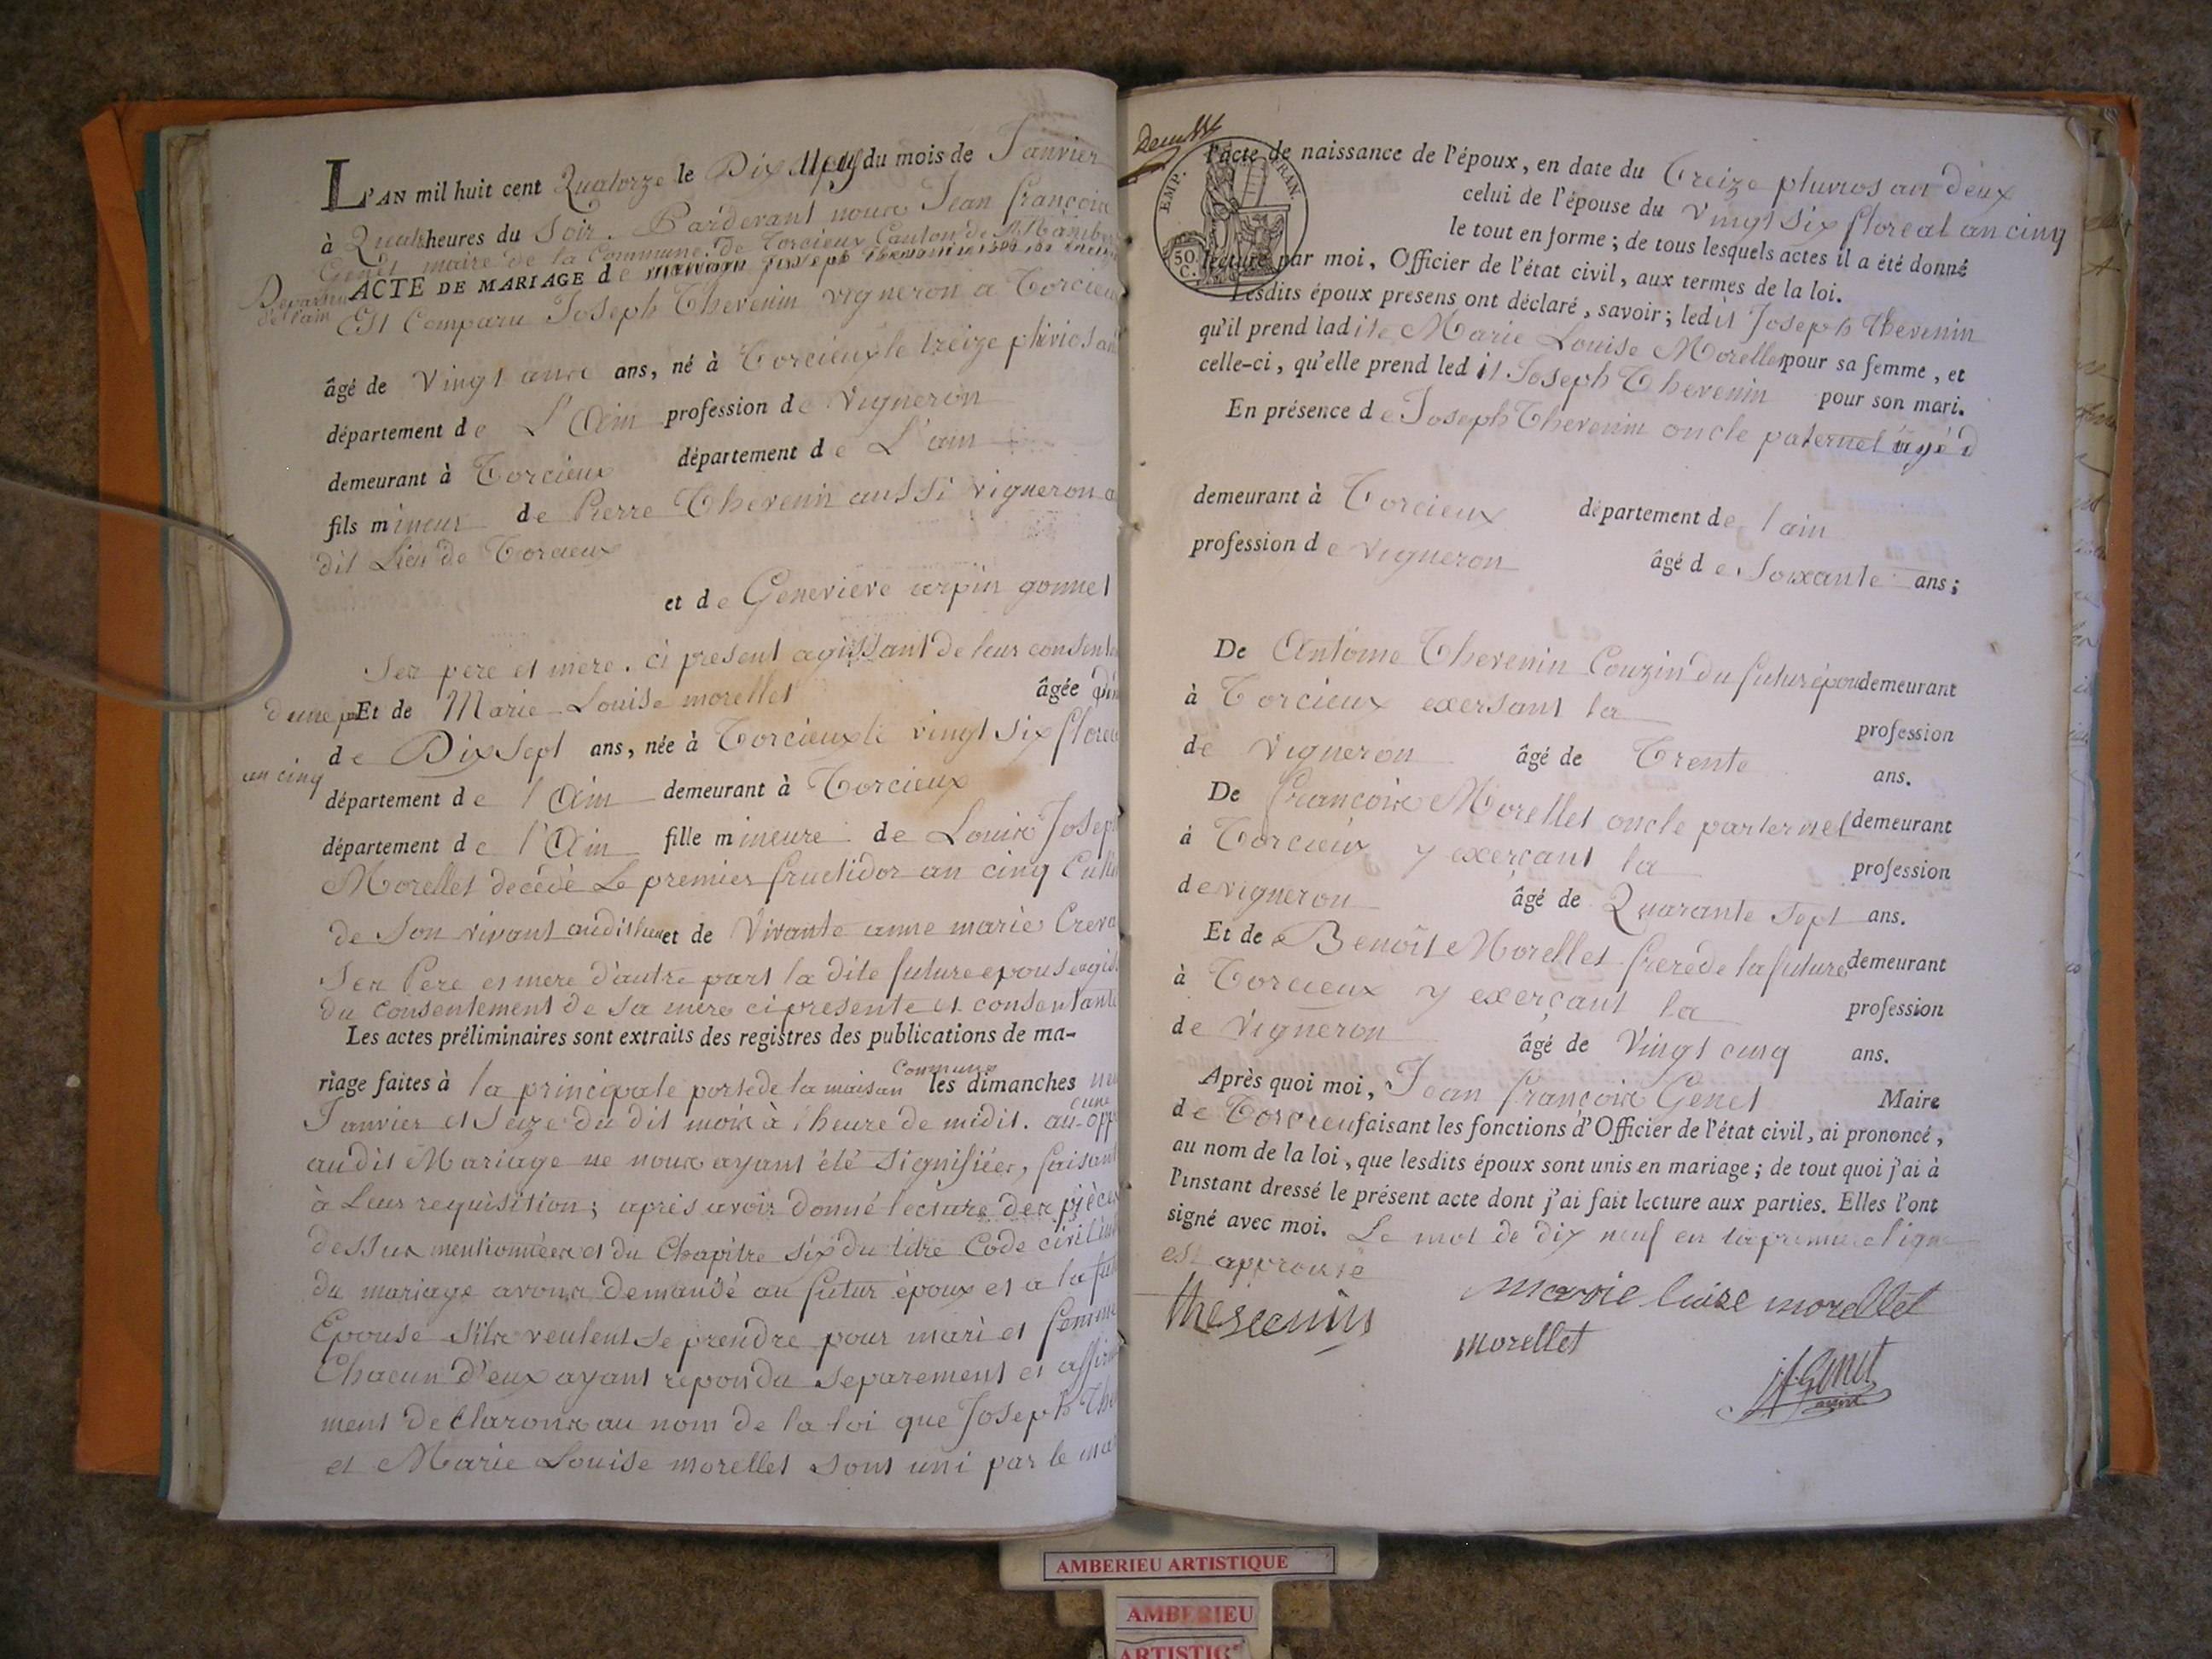 L'AN mil huit cent Quatorze le Dix neuf du mois de Janvier
à Quatre heures du Soir. Pardevant nous Jean françois
Genet maire de la Commune de Torcieux Canton de St Rambert
Departement de l'ain
ACTE DE MARIAGE de
Est Comparu Joseph Thevenin vigneron a Torcieux
âgé de Vingt ans, né à Torcieux le treize pluvios an
département de L'Ain profession de Vigneron
demeurant à Torcieux département de L'ain
fils mineur de Pierre Thevenin aussi vigneron a
dit Lieu de Torcieux
et de Genevieve arpin gonnet
Ses pere et mere. ci present agissant de leur consente
d'une part Et de Marie Louise morellet âgée
de Dix Sept ans, née à Torcieux le vingt six florea
an cinq
département de l'Ain demeurant à Torcieux
département de l'Ain fille mineure de Louis Joseph
Morellet decédé Le premier fructidor an cinq Culti
de Son vivant audit lieu et de Vivante anne marie Creva
Ses Pere et mere d'autre part la dite future epouse agis
du consentement de sa mere ci presente et consentante
Les actes préliminaires sont extraits des registres des publications de ma-
riage faites à la principale porte de la maison Commune les dimanches neuf
Janvier et Seize du dit mois à l'heure de midit. aucune opp
audit Mariage ne nous ayant été Signifiées, faisant
à Leur requisition; après avoir donné lecture des pièces
dessus mentionnées et du Chapitre six du titre Code civil
du mariage avons demandé au futur époux et a la futu
Epouse s'ils veulent se prendre pour mari et femme
Chacun d'eux ayant repondu separement et affirm
ment declarons au nom de la loi que Joseph The
et Marie Louise morellet sont uni par le mar
EMP. FRAN.
50 C.
l'acte de naissance de l'époux, en date du Treize pluvios an deux
celui de l'épouse du Vingt six floreal an cinq
le tout en forme; de tous lesquels actes il a été donné
lecture par moi, Officier de l'état civil, aux termes de la loi.
Lesdits époux presens ont déclaré, savoir; ledit Joseph thevenin
qu'il prend ladite Marie Louise Morellet pour sa femme, et
celle-ci, qu'elle prend ledit Joseph Thevenin pour son mari.
En présence de Joseph Thevenin oncle paternel âgé d
demeurant à Torcieux département de l'ain
profession de vigneron âgé de Soixante ans;
De Antoine Thevenin Couzin du futur époux demeurant
à Torcieux exersant la profession
de Vigneron âgé de Trente ans.
De françois Morellet oncle parternel demeurant
à Torcieux y exerçant la profession
de vigneron âgé de Quarante Sept ans.
Et de Benoit Morellet frere de la future demeurant
à Torcieux y exerçant la profession
de Vigneron âgé de Vingt cinq ans.
Après quoi moi, Jean françois Genet Maire
de Torcieu faisant les fonctions d'Officier de l'état civil, ai prononcé,
au nom de la loi, que lesdits époux sont unis en mariage; de tout quoi j'ai à
l'instant dressé le présent acte dont j'ai fait lecture aux parties. Elles l'ont
signé avec moi. Le mot de dix neuf en la premiere ligne
est approuvé
marie luise morellet
morellet
jf Genet
maire
AMBERIEU ARTISTIQUE
AMBERIEU
ARTISTIQ